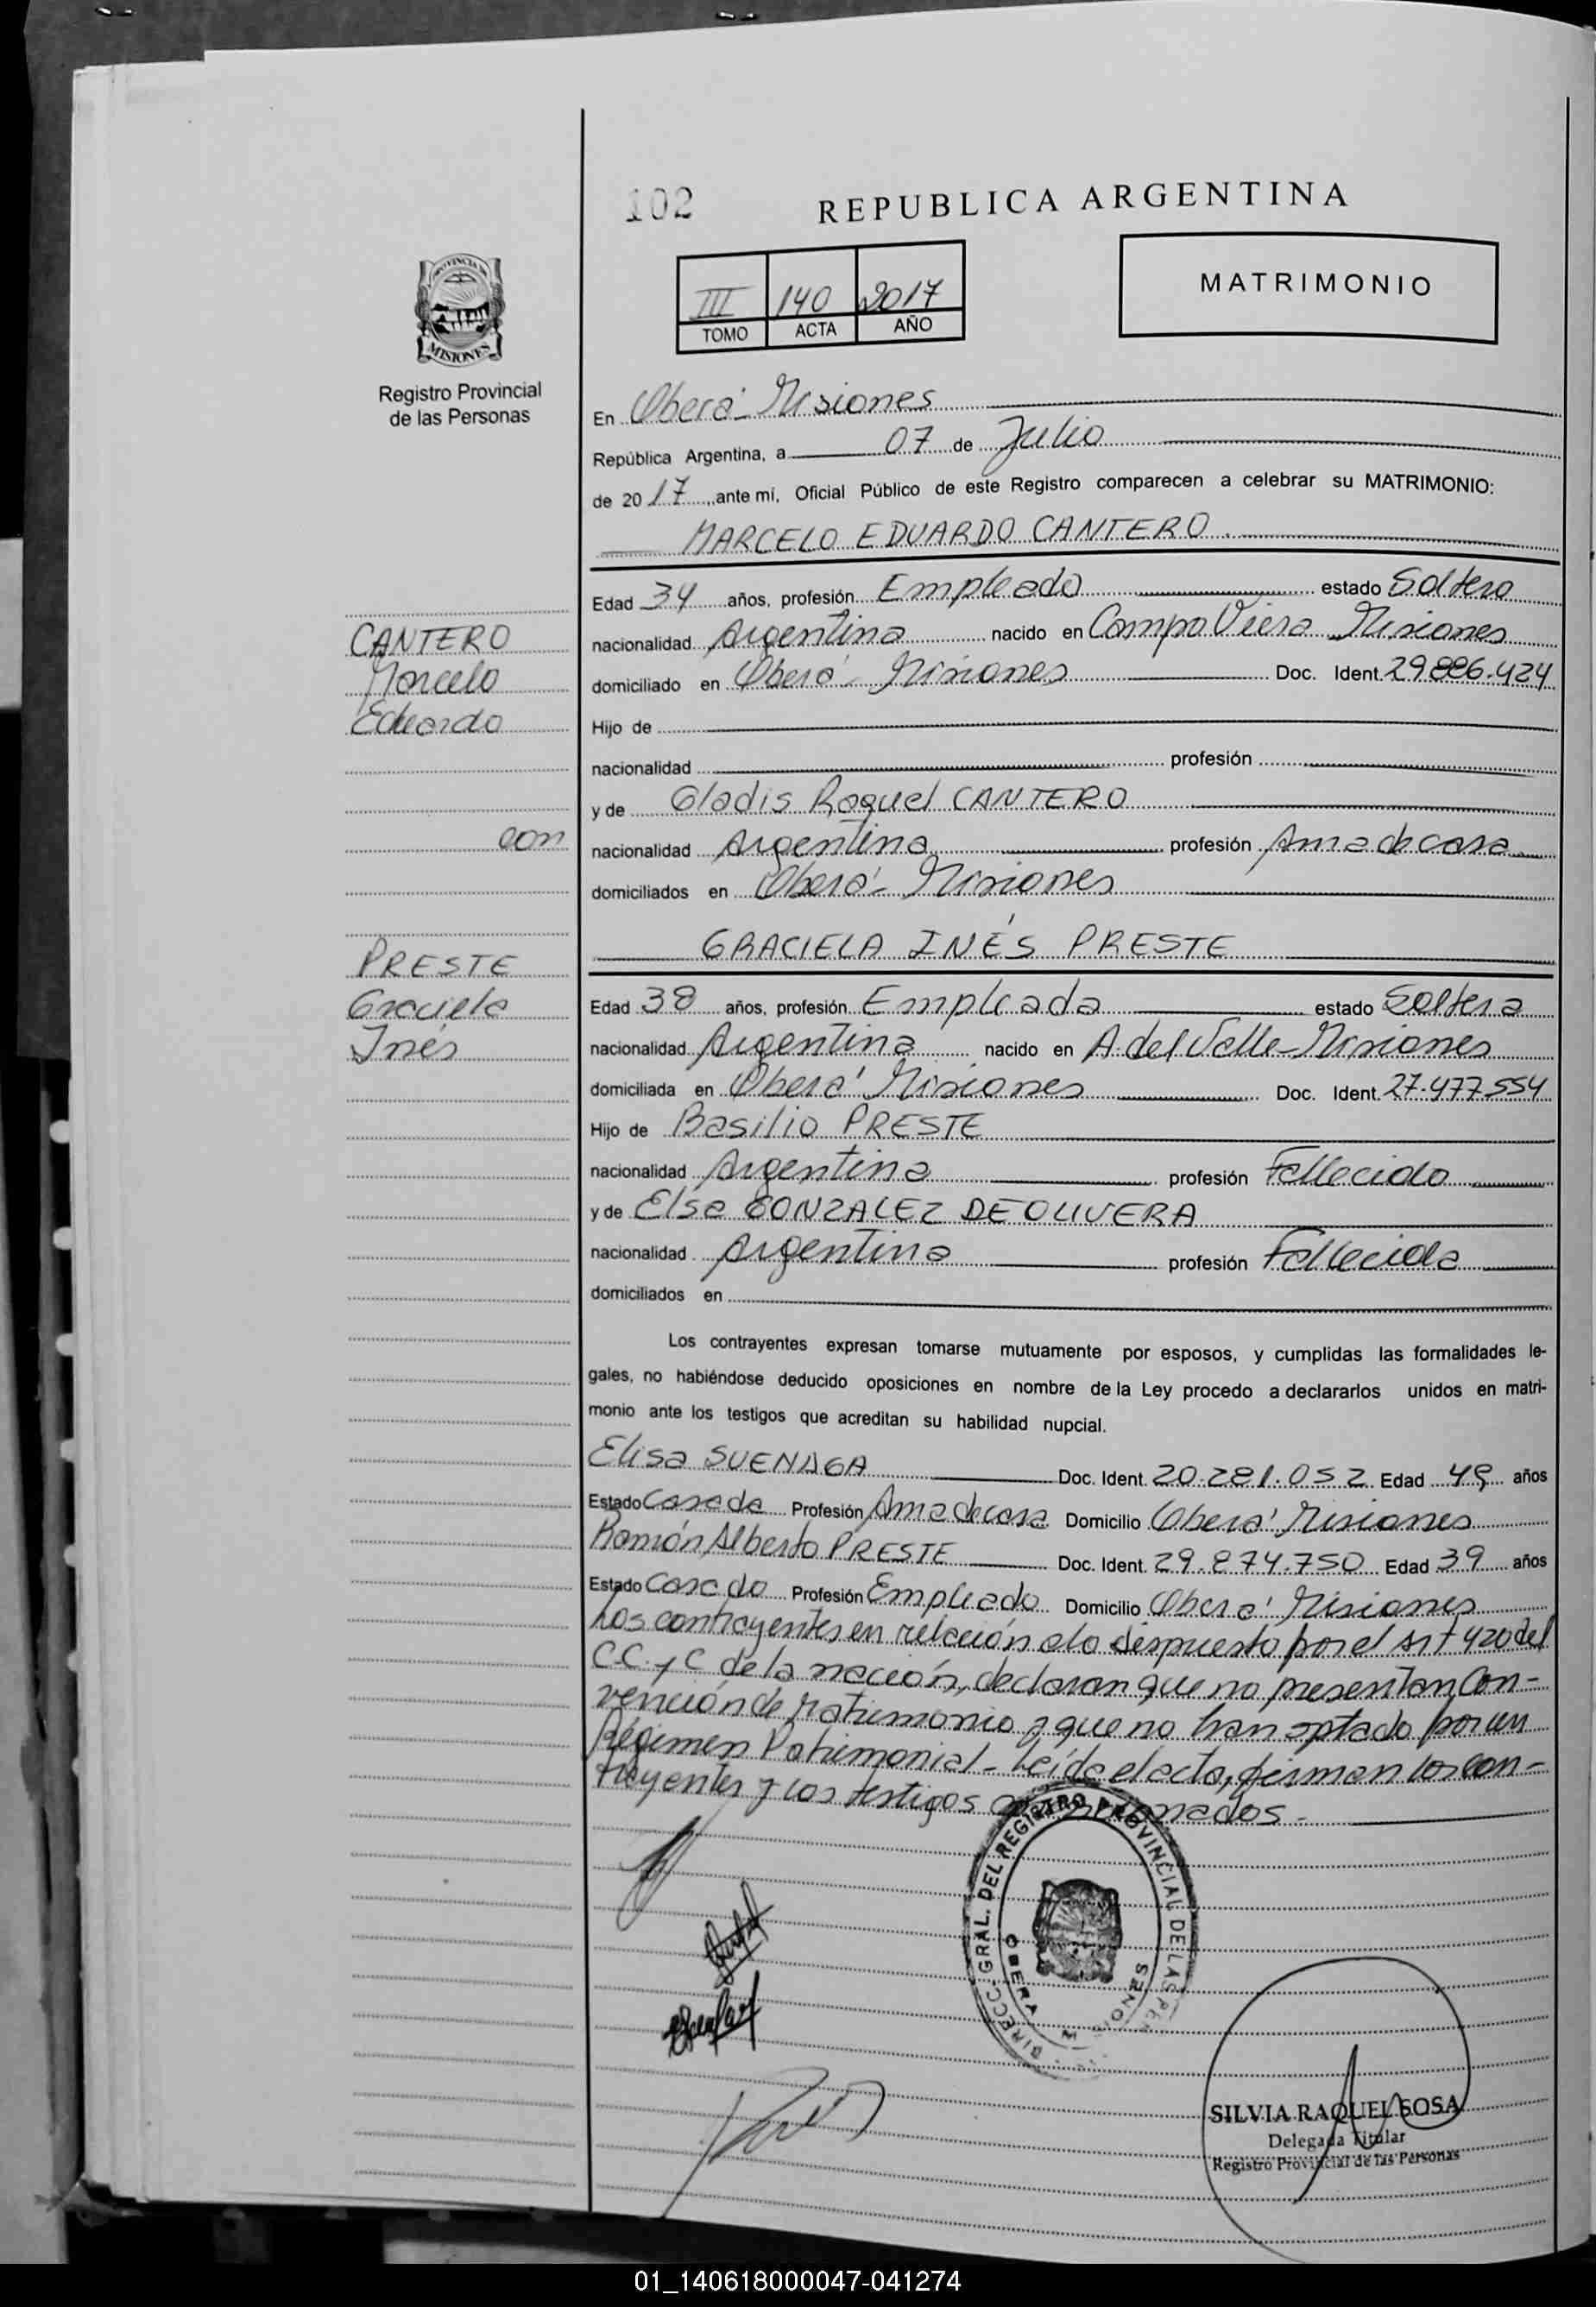 102
REPUBLICA ARGENTINA
III 140 2017
TOMO ACTA AÑO
MATRIMONIO
PROVINCIA DE
MISIONES
Registro Provincial
de las Personas
En Oberá - Misiones
República Argentina, a 07 de Julio
de 20 17 ante mí, Oficial Público de este Registro comparecen a celebrar su MATRIMONIO:
MARCELO EDUARDO CANTERO.
Edad 34 años, profesión Empleado estado Soltero
CANTERO
Marcelo
Eduardo
nacionalidad Argentina nacido en Campo Viera Misiones
domiciliado en Oberá - Misiones Doc. Ident. 29.886.424
Hijo de
nacionalidad profesión
y de Gladis Raquel CANTERO
con
nacionalidad Argentina profesión Ama de casa
domiciliados en Oberá - Misiones
GRACIELA INÉS PRESTE
PRESTE
Graciela
Inés
Edad 38 años, profesión Empleada estado Soltera
nacionalidad Argentina nacido en A. del Valle - Misiones
domiciliada en Oberá Misiones Doc. Ident. 27.477.554
Hijo de Basilio PRESTE
nacionalidad Argentina profesión Fallecido
y de Elsa GONZALEZ DE OLIVERA
nacionalidad Argentina profesión Fallecida
domiciliados en
Los contrayentes expresan tomarse mutuamente por esposos, y cumplidas las formalidades le-
gales, no habiéndose deducido oposiciones en nombre de la Ley procedo a declararlos unidos en matri-
monio ante los testigos que acreditan su habilidad nupcial.
Elisa SUENAGA Doc. Ident. 20.281.052 Edad 49 años
Estado Casada Profesión Ama de casa Domicilio Oberá Misiones
Ramón Alberto PRESTE Doc. Ident. 29.874.750 Edad 39 años
Estado Casado Profesión Empleado Domicilio Oberá Misiones
Los contrayentes en relación a lo dispuesto por el Art 420 del
C.C. y C de la nación, declaran que no presentan Con-
vención de Matrimonio y que no han optado por un
Régimen Patrimonial - Leída el acta, firman los con-
trayentes y los testigos mencionados.
DIRECC. GRAL. DEL REGISTRO PROVINCIAL DE LAS PER
OBERA MISIONES
SILVIA RAQUEL SOSA
Delegada Titular
Registro Provincial de las Personas
01_140618000047-041274